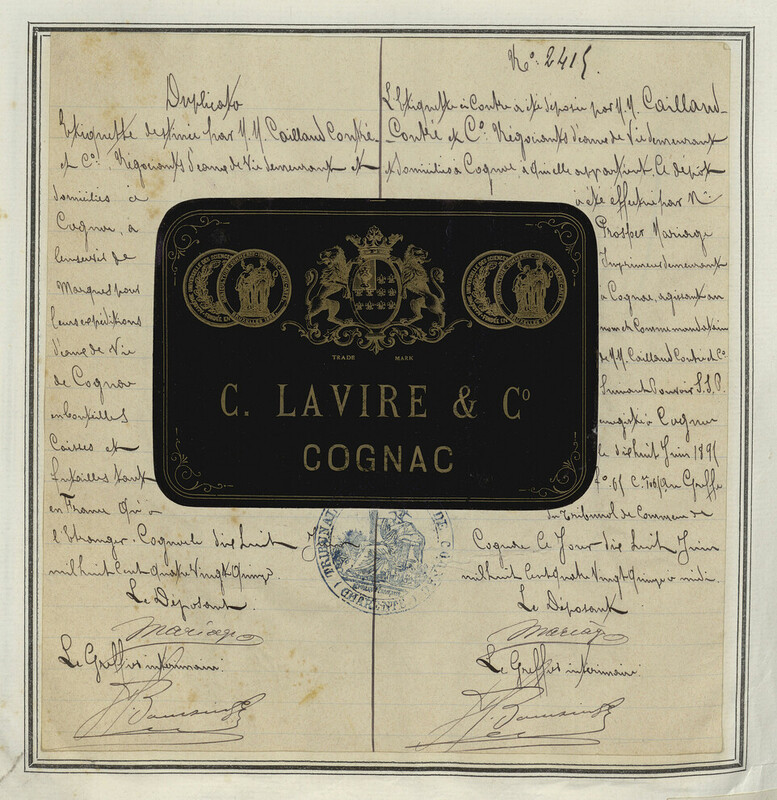 Duplicata
Etiquette destinée par M.M. Caillaud Contre
et Co. Négociants d'eaux de Vie demeurant et
domiciliés à
Cognac, à
de
Marques pour
leurs expéditions
d'eaux de Vie
de Cognac
en bouteilles
Caisses et
futailles tant
en France qu'à
l'Etranger. Cognac le dix huit
mil huit cent quatre vingt quinze
Le Déposant
Mariage
Le Greffier intérimaire:
No. 2415.
L'Etiquette ci contre a été déposée par M.M. Caillaud-
Contre et Co. Négociants d'eaux de Vie demeurant
et domiciliés à Cognac à qui elle appartient. Ce dépôt
a été effectué par Mr
Prosper Mariage
Imprimeur demeurant
à Cognac, agissant au
nom et comme mandataire
de M.M. Caillaud Contre et Co.
Suivant Pouvoir S.S.P.
enregistré à Cognac
le dix huit Juin 1895
au Greffe
du Tribunal de Commerce de
Cognac Ce Jour dix huit Juin
mil huit cent quatre vingt quinze à midi.
Le Déposant
Mariage
Le Greffier intérimaire:
TRADE MARK
C. LAVIRE & Co
COGNAC
TRIBUNAL DE CO
(CHARENTE)